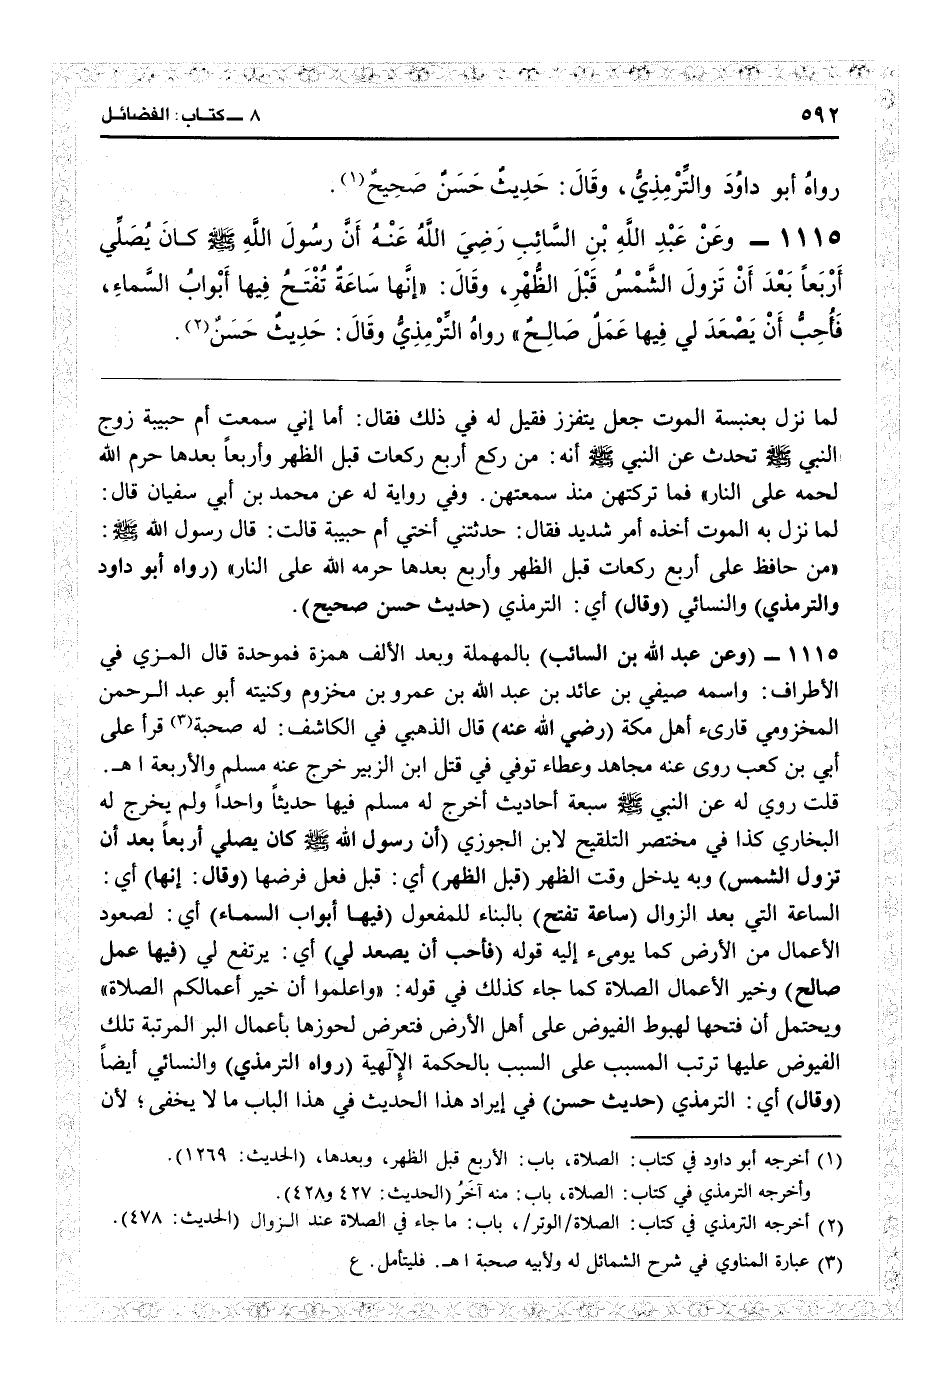 ٥٩٢
٨ ــ كتاب: الفضائل
رواهُ أبو داوُدَ والتِّرْمِذِيُّ، وقَالَ: حَدِيثٌ حَسَنٌ صَحِيحٌ(١).
١١١٥ ــ وعَنْ عَبْدِ اللَّهِ بْنِ السَّائِبِ رَضِيَ اللَّهُ عَنْهُ أَنَّ رسُولَ اللَّهِ ﷺ كانَ يُصَلِّي
أَرْبَعاً بَعْدَ أَنْ تَزولَ الشَّمْسُ قَبْلَ الظُّهْرِ، وقَالَ: «إنَّها سَاعَةٌ تُفْتَحُ فِيها أَبْوابُ السَّماءِ،
فَأُحِبُّ أَنْ يَصْعَدَ لي فِيها عَمَلٌ صَالِحٌ» رواهُ التِّرْمِذِيُّ وقَالَ: حَدِيثٌ حَسَنٌ(٢).
لما نزل بعنبسة الموت جعل يتفزز فقيل له في ذلك فقال: أما إني سمعت أم حبيبة زوج
النبي ﷺ تحدث عن النبي ﷺ أنه: من ركع أربع ركعات قبل الظهر وأربعاً بعدها حرم الله
لحمه على النار» فما تركتهن منذ سمعتهن. وفي رواية له عن محمد بن أبي سفيان قال:
لما نزل به الموت أخذه أمر شديد فقال: حدثتني أختي أم حبيبة قالت: قال رسول الله ﷺ:
«من حافظ على أربع ركعات قبل الظهر وأربع بعدها حرمه الله على النار» (رواه أبو داود
والترمذي) والنسائي (وقال) أي: الترمذي (حديث حسن صحيح).
١١١٥ ــ (وعن عبد الله بن السائب) بالمهملة وبعد الألف همزة فموحدة قال المزي في
الأطراف: واسمه صيفي بن عائد بن عبد الله بن عمرو بن مخزوم وكنيته أبو عبد الرحمن
المخزومي قارىء أهل مكة (رضي الله عنه) قال الذهبي في الكاشف: له صحبة(٣) قرأ على
أبي بن كعب روى عنه مجاهد وعطاء توفي في قتل ابن الزبير خرج عنه مسلم والأربعة ا هـ.
قلت روي له عن النبي ﷺ سبعة أحاديث أخرج له مسلم فيها حديثاً واحداً ولم يخرج له
البخاري كذا في مختصر التلقيح لابن الجوزي (أن رسول الله ﷺ كان يصلي أربعاً بعد أن
تزول الشمس) وبه يدخل وقت الظهر (قبل الظهر) أي: قبل فعل فرضها (وقال: إنها) أي:
الساعة التي بعد الزوال (ساعة تفتح) بالبناء للمفعول (فيها أبواب السماء) أي: لصعود
الأعمال من الأرض كما يومىء إليه قوله (فأحب أن يصعد لي) أي: يرتفع لي (فيها عمل
صالح) وخير الأعمال الصلاة كما جاء كذلك في قوله: «واعلموا أن خير أعمالكم الصلاة»
ويحتمل أن فتحها لهبوط الفيوض على أهل الأرض فتعرض لحوزها بأعمال البر المرتبة تلك
الفيوض عليها ترتب المسبب على السبب بالحكمة الإلٰهية (رواه الترمذي) والنسائي أيضاً
(وقال) أي: الترمذي (حديث حسن) في إيراد هذا الحديث في هذا الباب ما لا يخفى؛ لأن
(١) أخرجه أبو داود في كتاب: الصلاة، باب: الأربع قبل الظهر، وبعدها، (الحديث: ١٢٦٩).
وأخرجه الترمذي في كتاب: الصلاة، باب: منه آخَرُ (الحديث: ٤٢٧ و٤٢٨).
(٢) أخرجه الترمذي في كتاب: الصلاة/الوتر/، باب: ما جاء في الصلاة عند الزوال (الحديث: ٤٧٨).
(٣) عبارة المناوي في شرح الشمائل له ولأبيه صحبة ا هـ. فليتأمل. ع